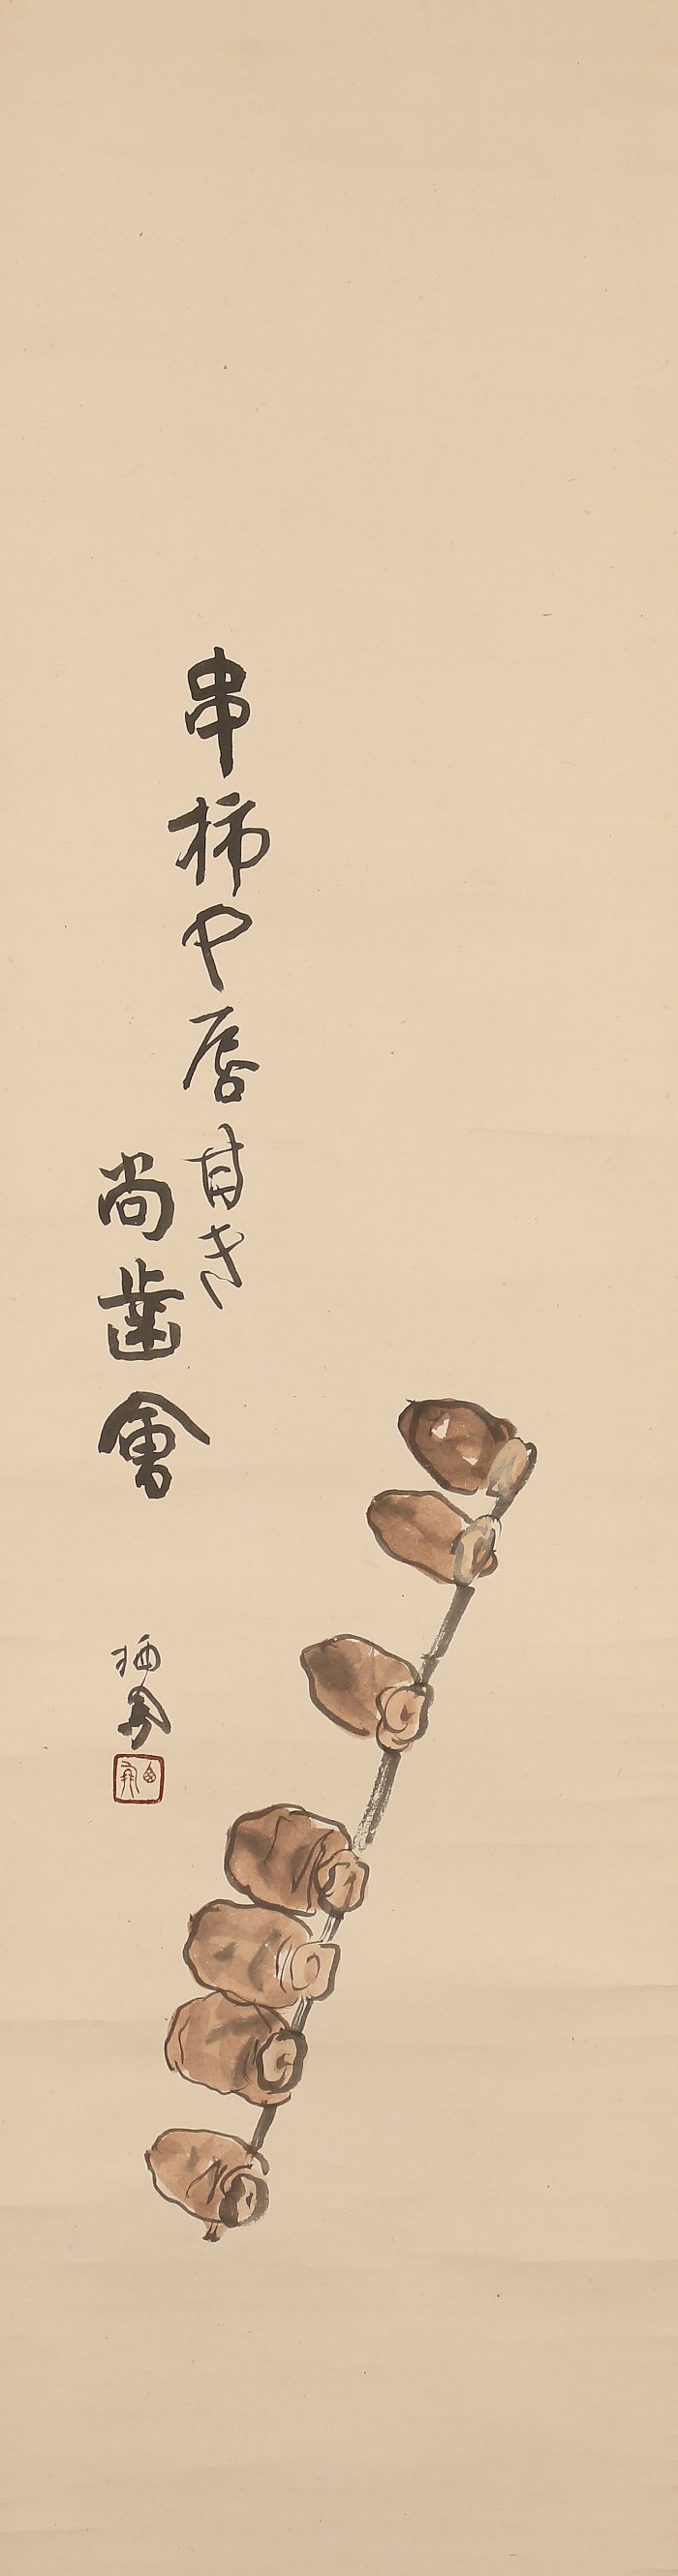 串柿や唇甘き
尚歯會
栖鳳